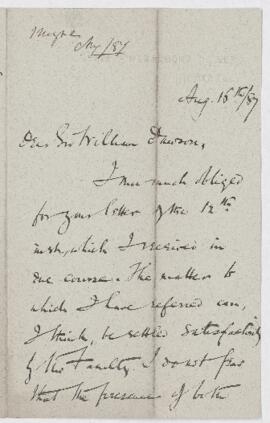 Moyse
Aug/87
Aug. 18th/87
Dear Sir William Dawson,
I am much obliged
for your letter of the 12th
inst, which I received in
due course. The matter to
which I have referred can,
I think, be settled satisfactorily
by the Faculty. I do not fear
that the presence of both